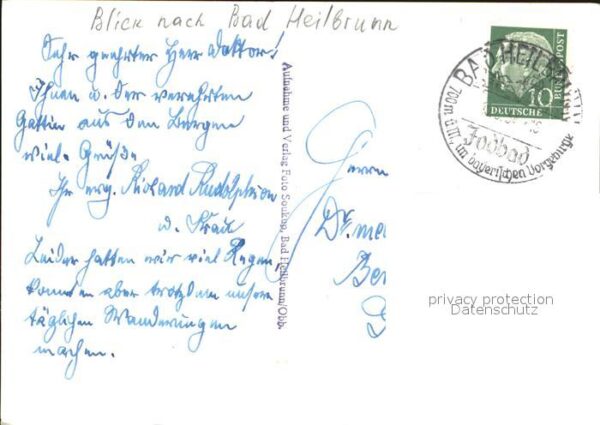 Blick nach Bad Heilbrunn
Sehr geehrter Herr Doktor!
Ihnen u. der verehrten
Gattin aus den Bergen
viele Grüße
Ihr erg. Richard Rudolphson
u. Frau
Leider hatten wir viel Regen,
konnten aber trotzdem unsere
täglichen Wanderungen
machen.
Aufnahme und Verlag Foto Soukup, Bad Heilbrunn/Obb.
Herrn
Dr. me
Ber
10
DEUTSCHE
BUNDESPOST
BAD HEILBRUNN
Jodbad
700m ü.M. im bayerischen Vorgebirge
privacy protection
Datenschutz